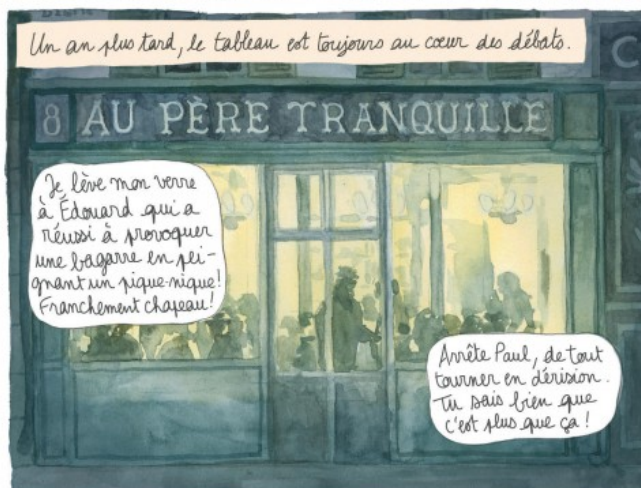 Un an plus tard, le tableau est toujours au coeur des débats.
8 AU PÈRE TRANQUILLE
C
Je lève mon verre
à Édouard qui a
réussi à provoquer
une bagarre en pei-
gnant un pique-nique!
Franchement chapeau!
Arrête Paul, de tout
tourner en dérision.
Tu sais bien que
c'est plus que ça!